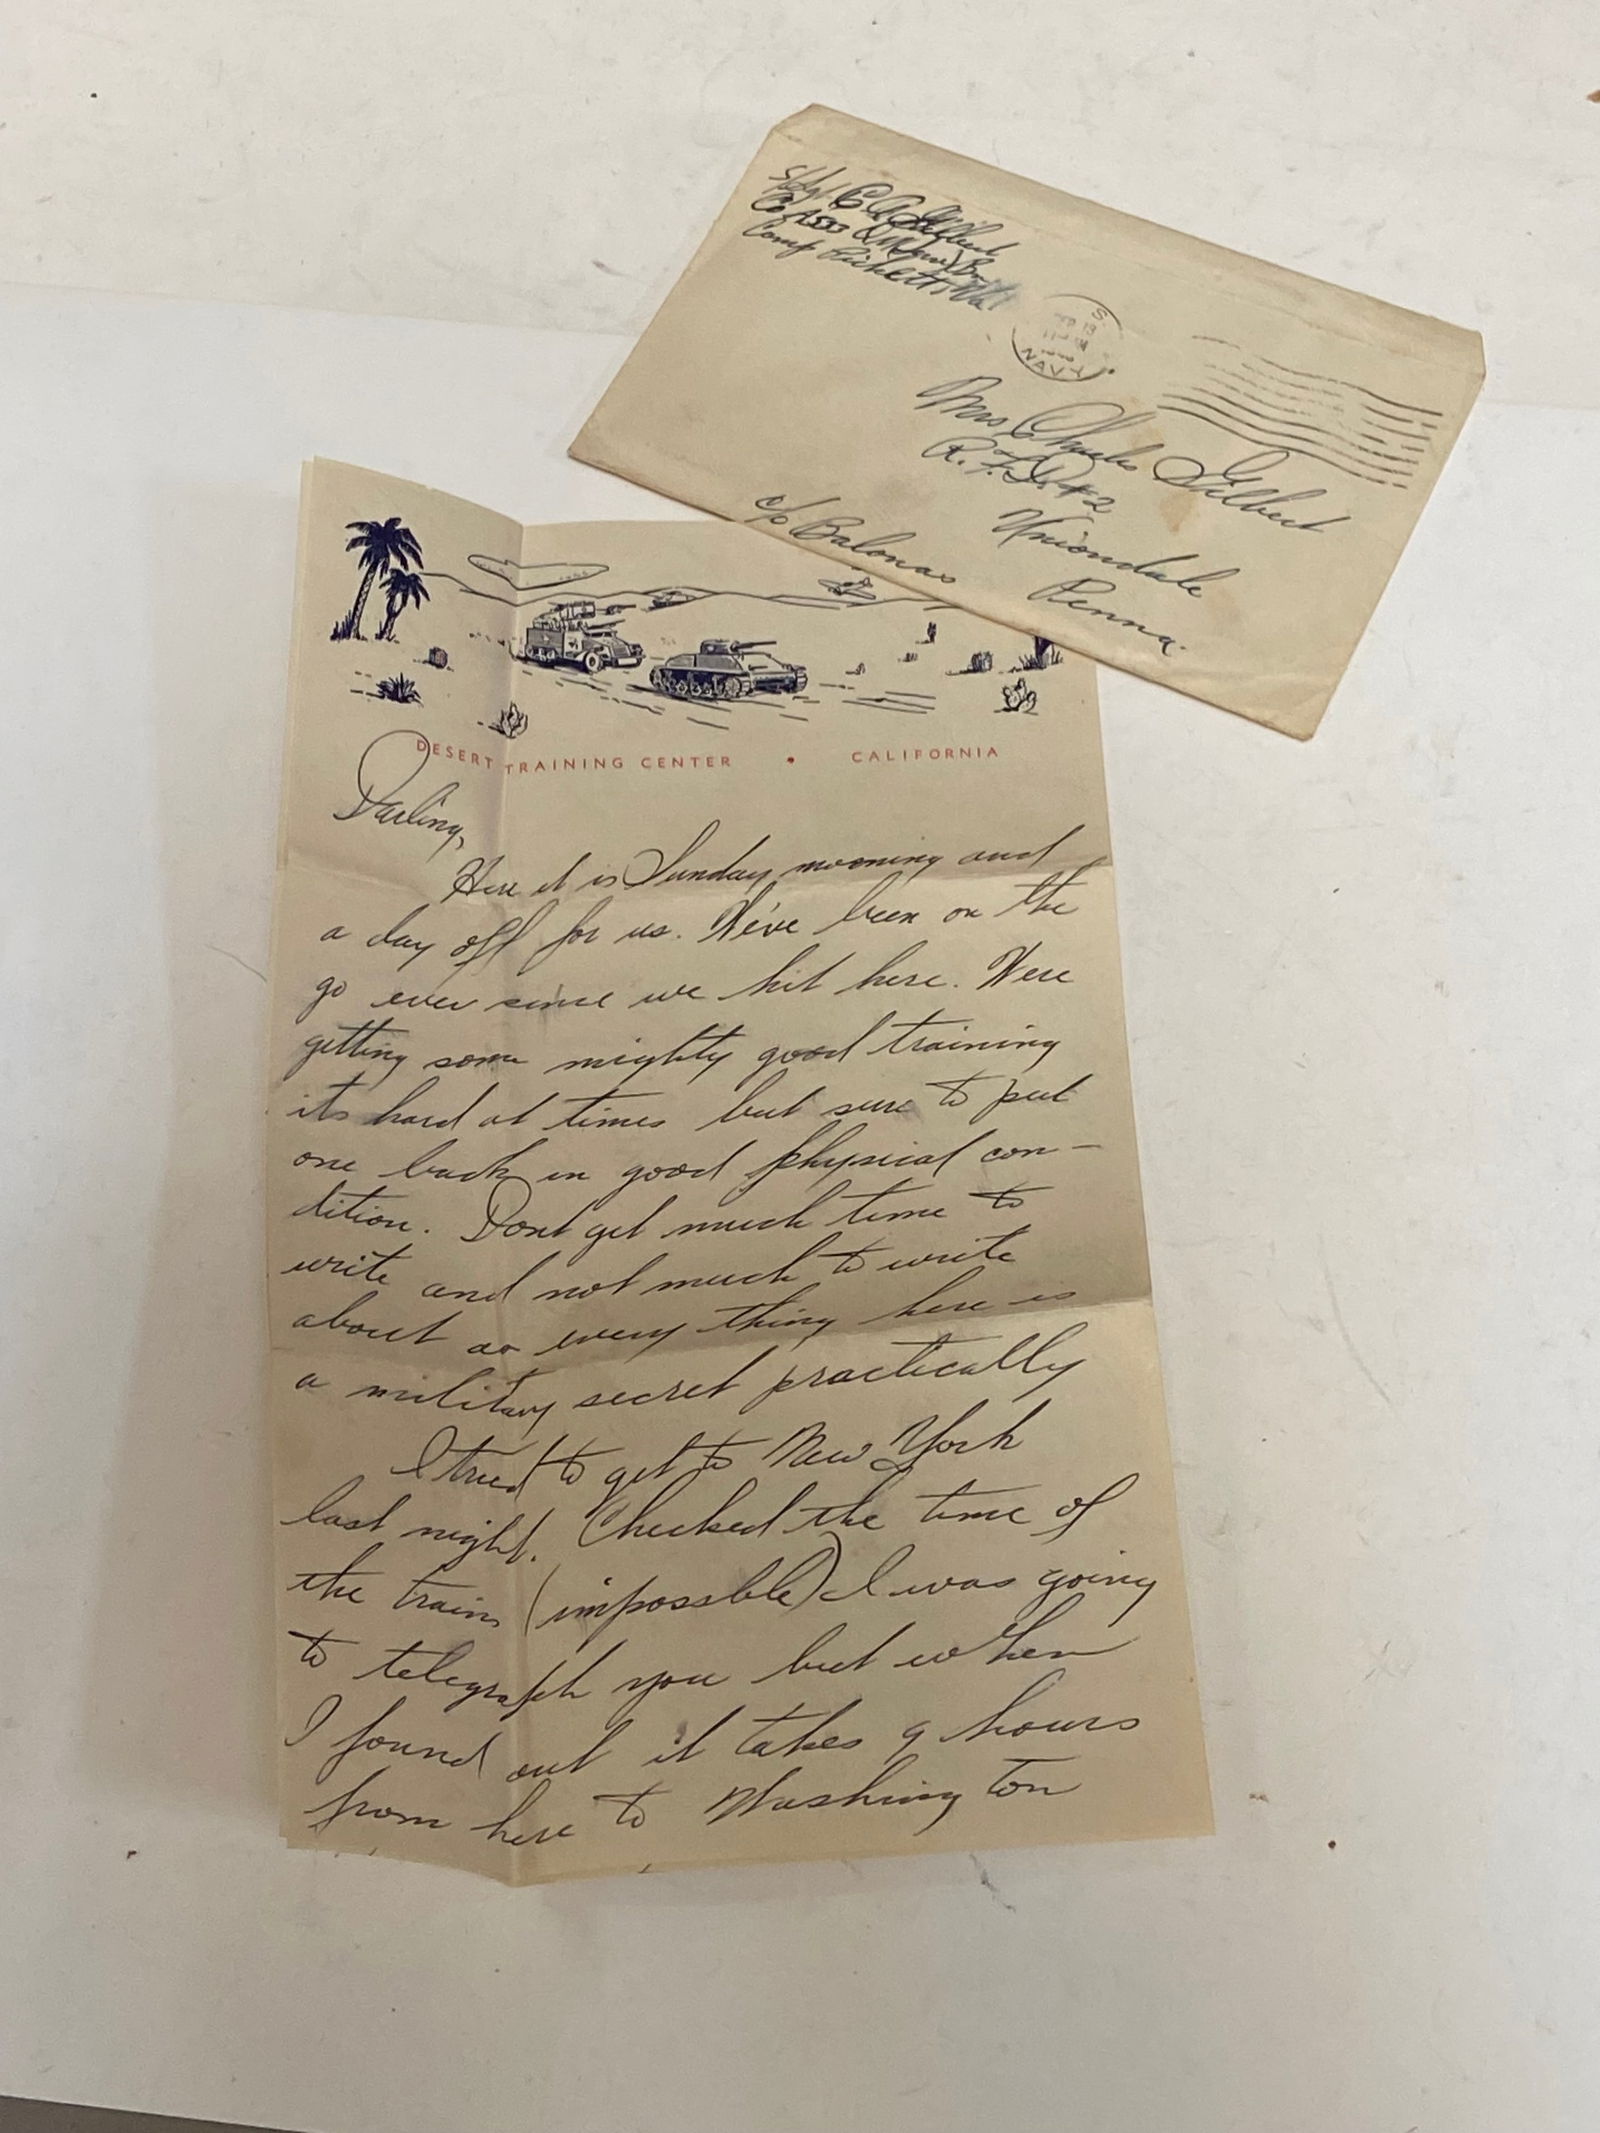 S/Sgt C A Gilbert
Co A 533 Q
Camp Pickett, Va
S.
SEP 13
NAVY
Mrs Charles Gilbert
R.F.D. #2
Uniondale
c/o Balonas Penna.
DESERT TRAINING CENTER • CALIFORNIA
Darling,
Here it is Sunday morning and
a day off for us. We've been on the
go ever since we hit here. Were
getting some mighty good training
its hard at times but sure to put
one back in good physical con-
dition. Dont get much time to
write and not much to write
about as every thing here is
a military secret practically
I tried to get to New York
last night. Checked the time of
the trains (impossble) I was going
to telegraph you but when
I found out it takes 9 hours
from here to Washington